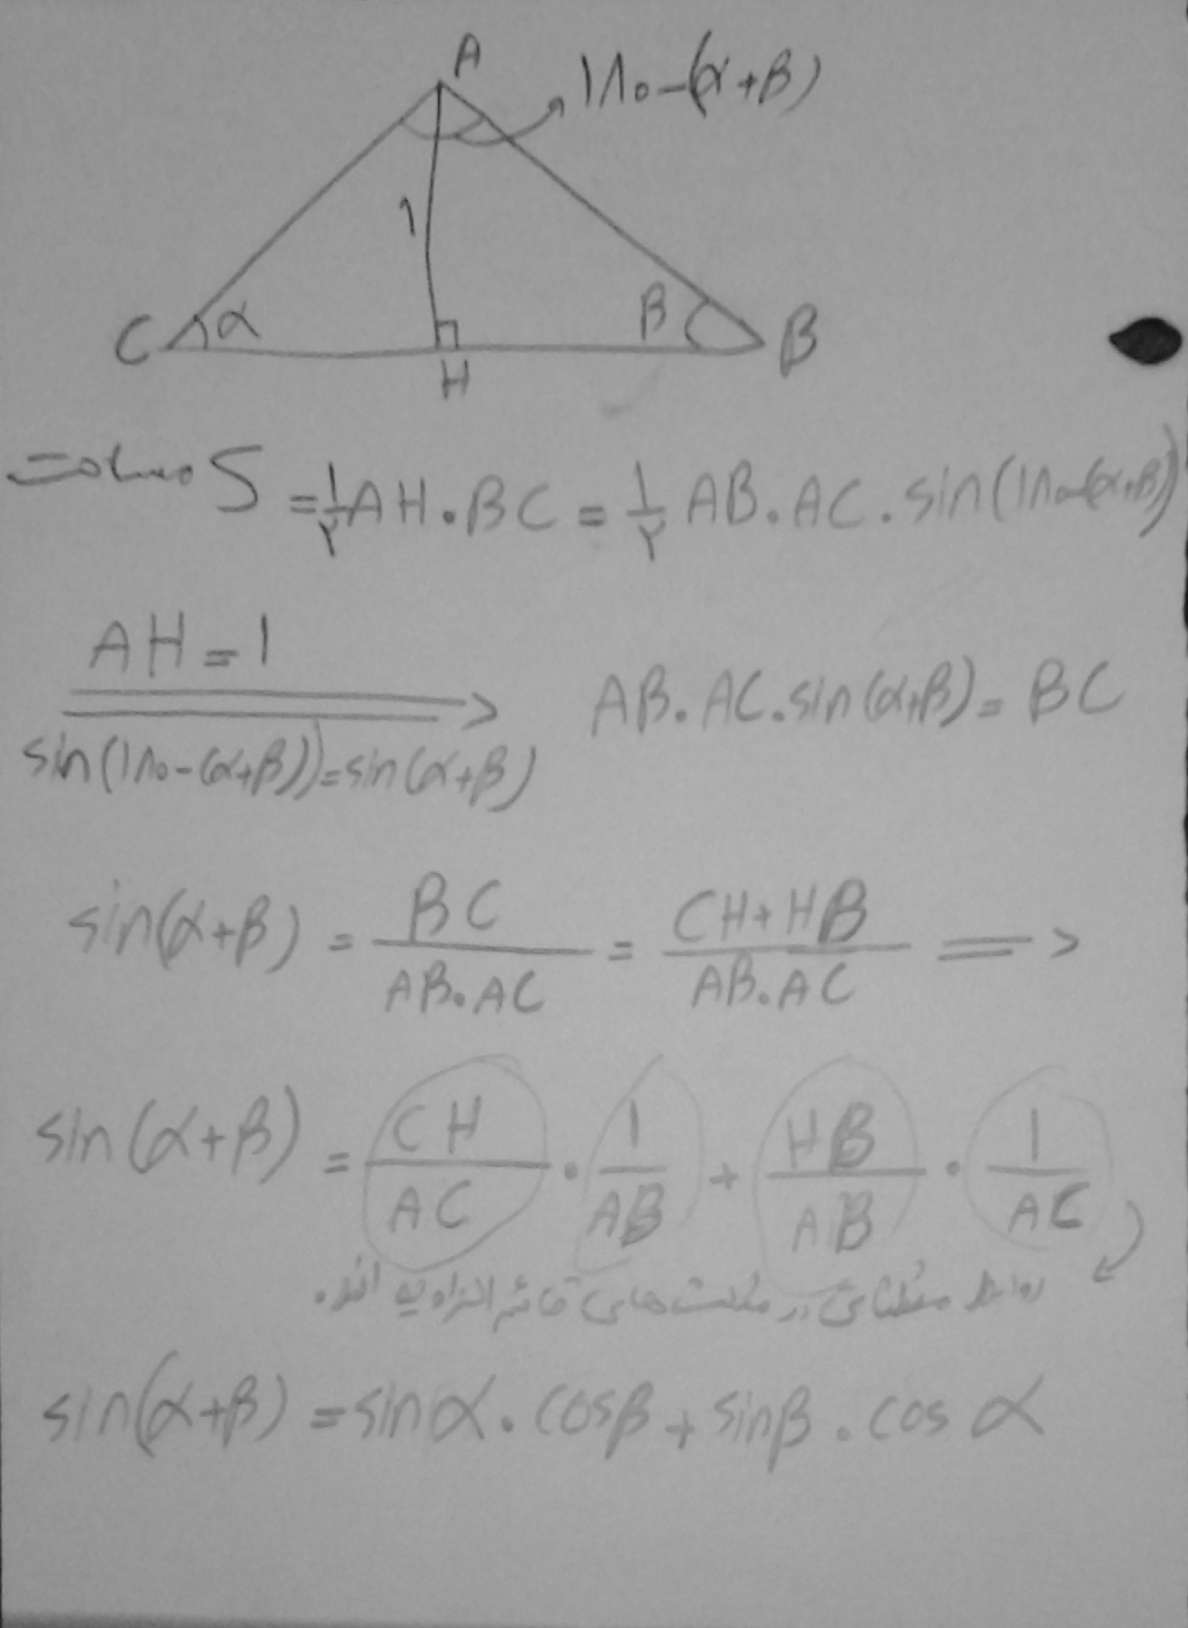 A
۱۸۰-(α+β)
۱
C α β B
H
مساحت S = ۱/۲ AH.BC = ۱/۲ AB.AC.sin(۱۸۰-(α+β))
AH=1
sin(۱۸۰-(α+β))=sin(α+β)
AB.AC.sin(α+β)=BC
sin(α+β) = BC/AB.AC = CH+HB/AB.AC =>
sin(α+β) = CH/AC . 1/AB + HB/AB . 1/AC
روابط مثلثاتی در مثلث‌های قائم الزاویه اند.
sin(α+β) = sinα.cosβ + sinβ.cosα